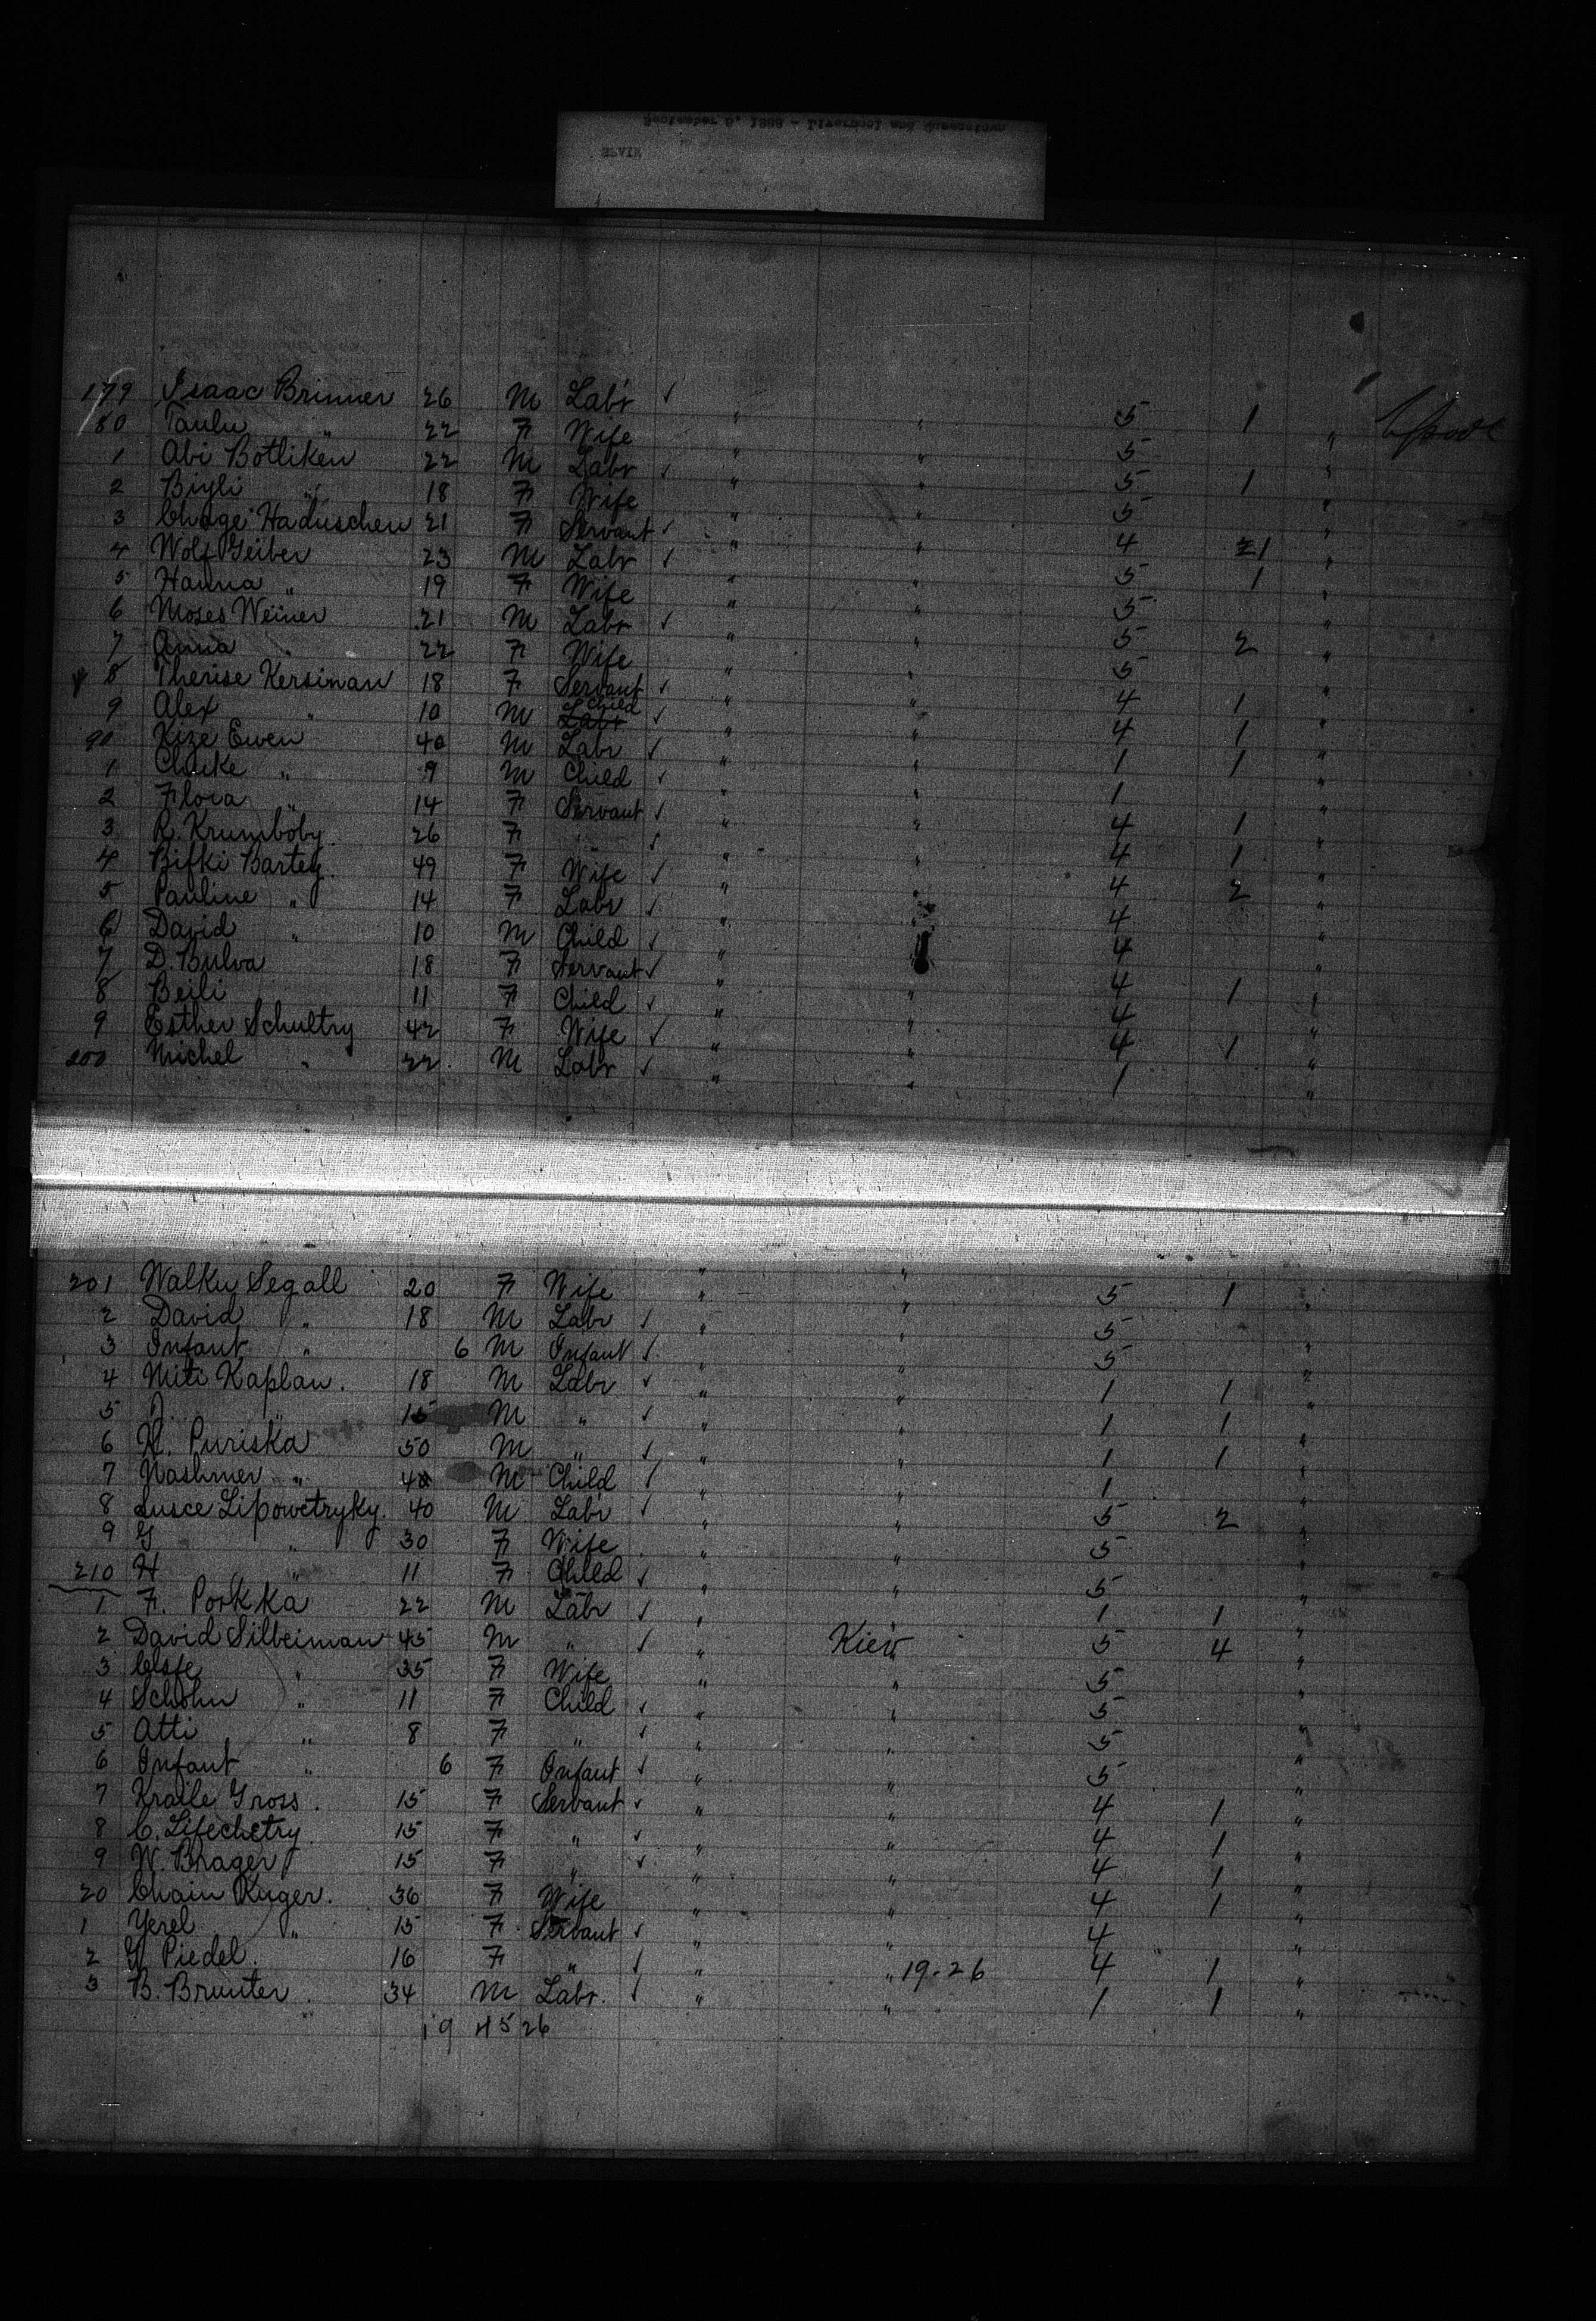 September 6, 1888 - Liverpool and Queenstown
SPAIN
179 Isaac Brinner 26 M Labr ✓ 5 1 " L'pool
80 Taulu " 22 F Wife " " 5 "
1 Abi Botliken 22 M Labr ✓ " " 5 1 "
2 Biyli " 18 F Wife " " 5 "
3 Chage Haduschen 21 F Servant ✓ " " 4 1 "
4 Wolf Geiber 23 M Labr ✓ " " 5 1 "
5 Hanna " 19 F Wife " " 5 "
6 Moses Weiner 21 M Labr ✓ " " 5 2 "
7 Anna " 22 F Wife " " 5 "
8 Therise Kersinan 18 F Servant ✓ " " 4 1 "
9 Alex " 10 M Labr Child ✓ " " 4 1 "
90 Kize Ewen 40 M Labr ✓ " " 1 1 "
1 Chaike " 9 M Child ✓ " " 1 "
2 Flora " 14 F Servant ✓ " " 4 1 "
3 R. Krumboby 26 F " ✓ " " 4 1 "
4 Bifki Bartey 49 F Wife ✓ " " 4 2 "
5 Pauline " 14 F Labr ✓ " " 4 "
6 David " 10 M Child ✓ " 4 "
7 D. Bulva 18 F Servant ✓ " " 4 1 "
8 Beili 11 F Child ✓ " " 4 "
9 Esther Schultry 42 F Wife ✓ " " 4 1 "
200 Michel " 22 M Labr ✓ " " 1 "
201 Walku Segall 20 F Wife " " 5 1 "
2 David " 18 M Labr ✓ " " 5 "
3 Infant " 6 M Infant ✓ " " 5 "
4 Miti Kaplan. 18 M Labr ✓ " " 1 1 "
5 J. " 15 M " ✓ " " 1 1 "
6 H. Puriska 50 M " ✓ " " 1 1 "
7 Nashmer " M Child ✓ " " 1 "
8 Susce Lipowetryky. 40 M Labr ✓ " " 5 2 "
9 G " 30 F Wife " " 5 "
210 H " 11 F Child ✓ " " 5 "
1 F. Porkka 22 M Labr ✓ " " 1 1 "
2 David Silbeiman 45 M " ✓ " Kiev 5 4 "
3 Else " 35 F Wife " " 5 "
4 Schohn " 11 F Child ✓ " " 5 "
5 Atti " 8 F " ✓ " " 5 "
6 Infant " 6 F Infant ✓ " " 5 "
7 Kraile Gross. 15 F Servant ✓ " " 4 1 "
8 C. Lifechetry 15 F " ✓ " " 4 1 "
9 W. Brager 15 F " ✓ " " 4 1 "
20 Chain Kuger. 36 F Wife " " 4 1 "
1 Yerel " 15 F Servant ✓ " " 4 "
2 G. Piedel. 16 F " ✓ " " 19-26 4 1 "
3 B. Brunter. 34 M Labr. ✓ " " 1 1 "
19 45 26